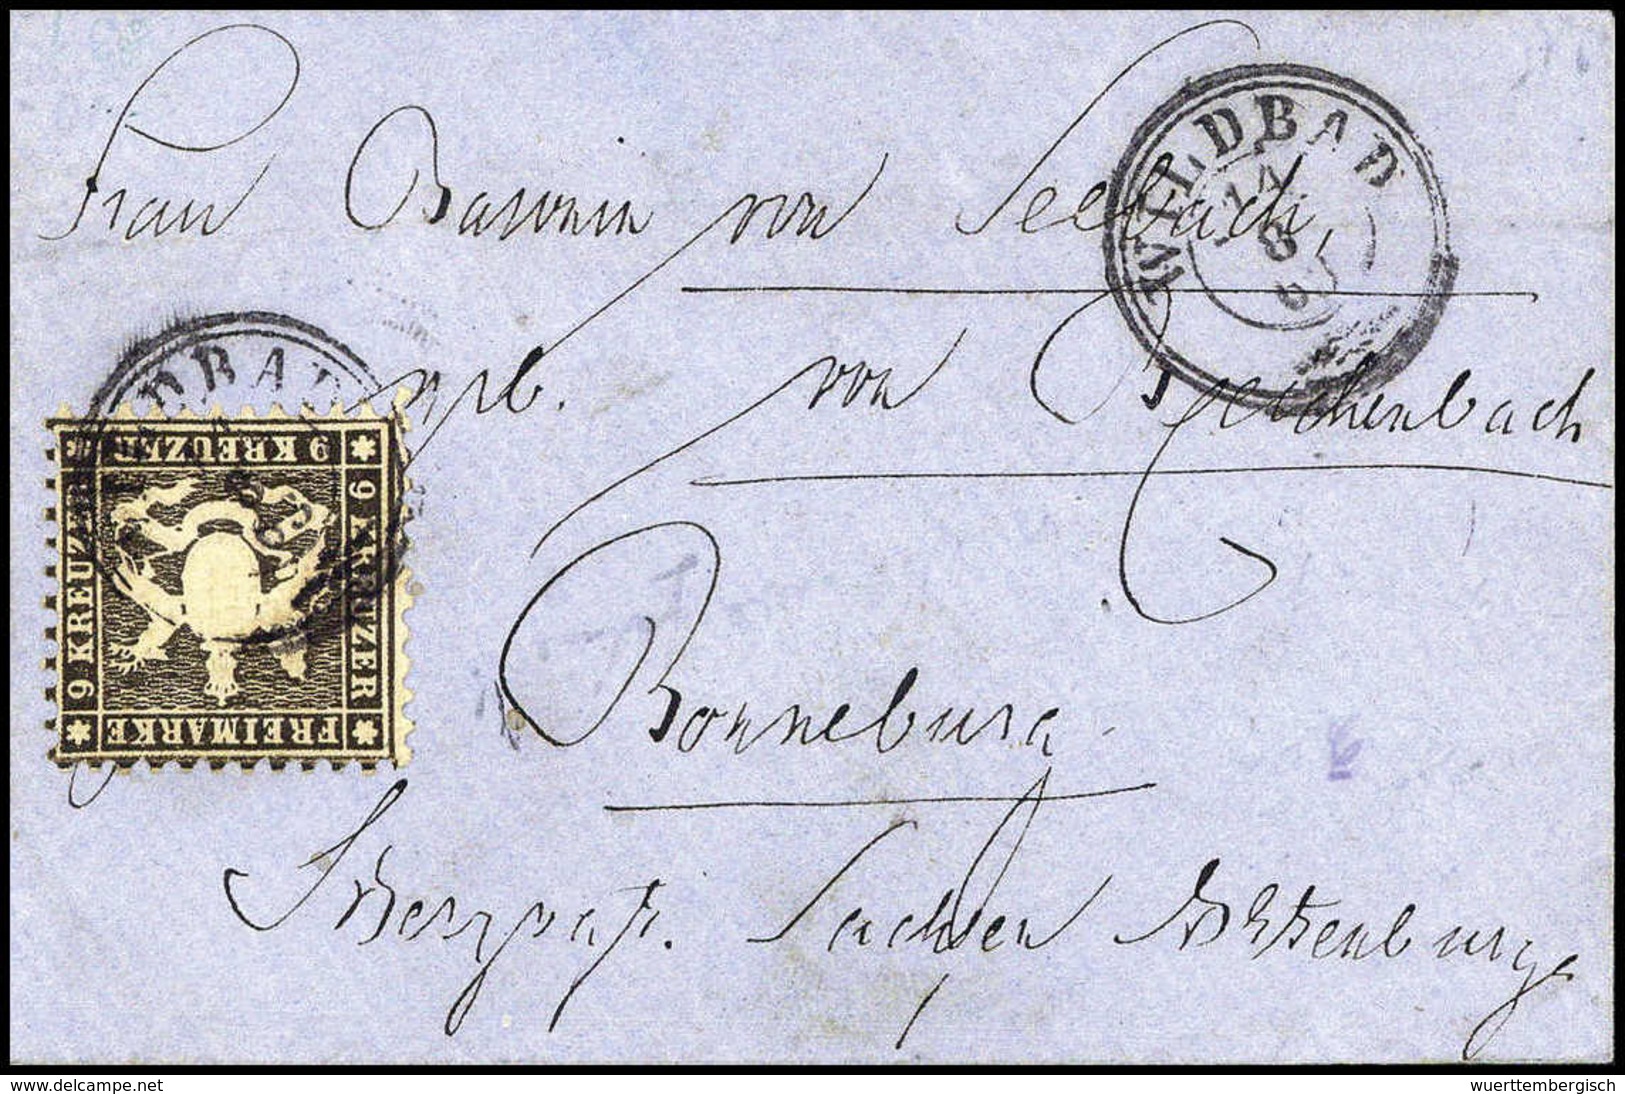 Frau Baronin von Seebach,
WILDBAD
14
8
geb. von Reichenbach
DBAD
9 KREUZER
9 KREUZER
9 KREUZER
FREIMARKE
Ronneburg
Herzogth. Sachsen Altenburg
delcampe.net
wuerttembergisch